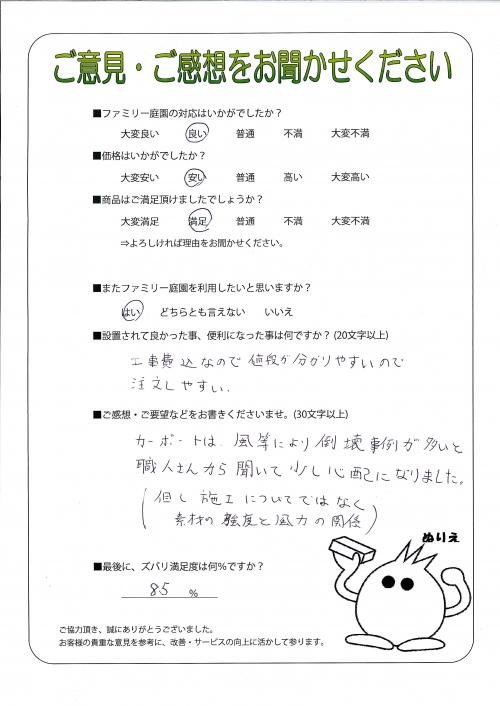 ご意見・ご感想をお聞かせください
■ファミリー庭園の対応はいかがでしたか？
大変良い 良い 普通 不満 大変不満
■価格はいかがでしたか？
大変安い 安い 普通 高い 大変高い
■商品はご満足頂けましたでしょうか？
大変満足 満足 普通 不満 大変不満
⇒よろしければ理由をお聞かせください。
■またファミリー庭園を利用したいと思いますか？
はい どちらとも言えない いいえ
■設置されて良かった事、便利になった事は何ですか？ (20文字以上)
工事費込なので値段が分かりやすいので
注文しやすい.
■ご感想・ご要望などをお書きくださいませ。(30文字以上)
カーポートは、風等により倒壊事例が多いと
職人さんから聞いて少し心配になりました。
(但し施工についてではなく
素材の強度と風力の関係)
ぬりえ
■最後に、ズバリ満足度は何％ですか？
85 %
ご協力頂き、誠にありがとうございました。
お客様の貴重な意見を参考に、改善・サービスの向上に活かして参ります。